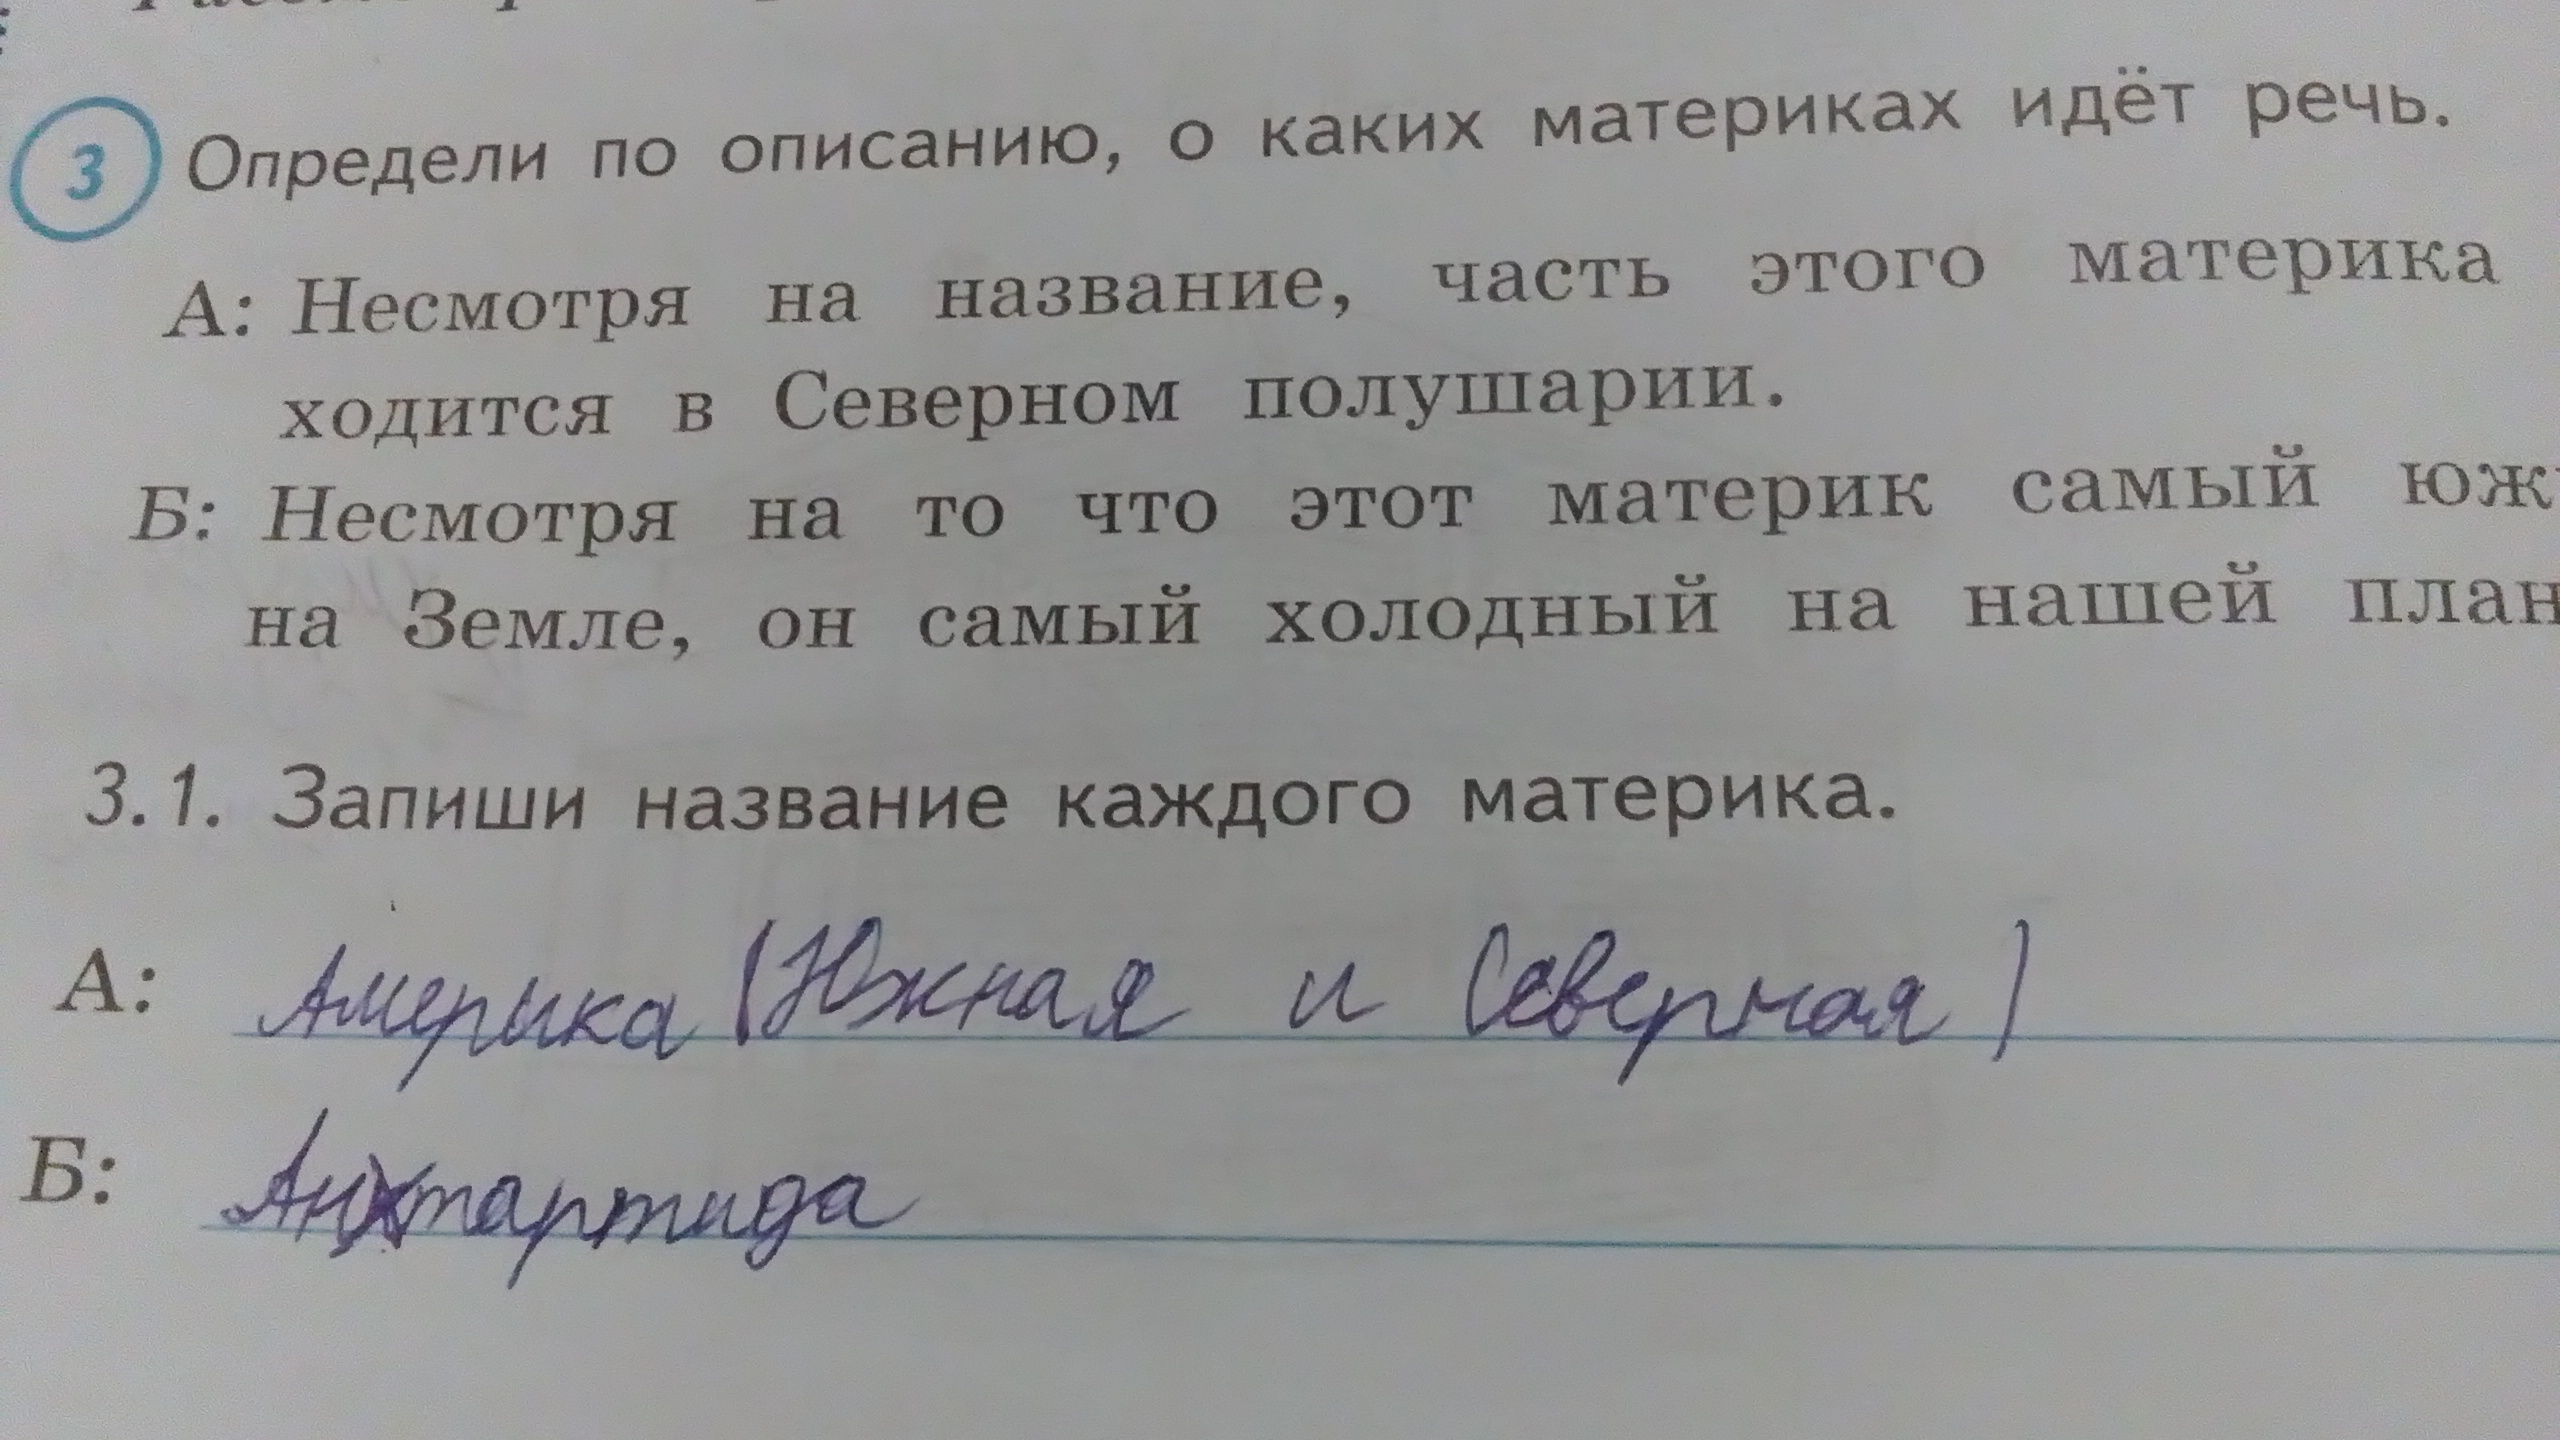 3 Определи по описанию, о каких материках идёт речь.
А: Несмотря на название, часть этого материка
ходится в Северном полушарии.
Б: Несмотря на то что этот материк самый юж
на Земле, он самый холодный на нашей план
3.1. Запиши название каждого материка.
А: Америка (Южная и Северная)
Б: Антартида